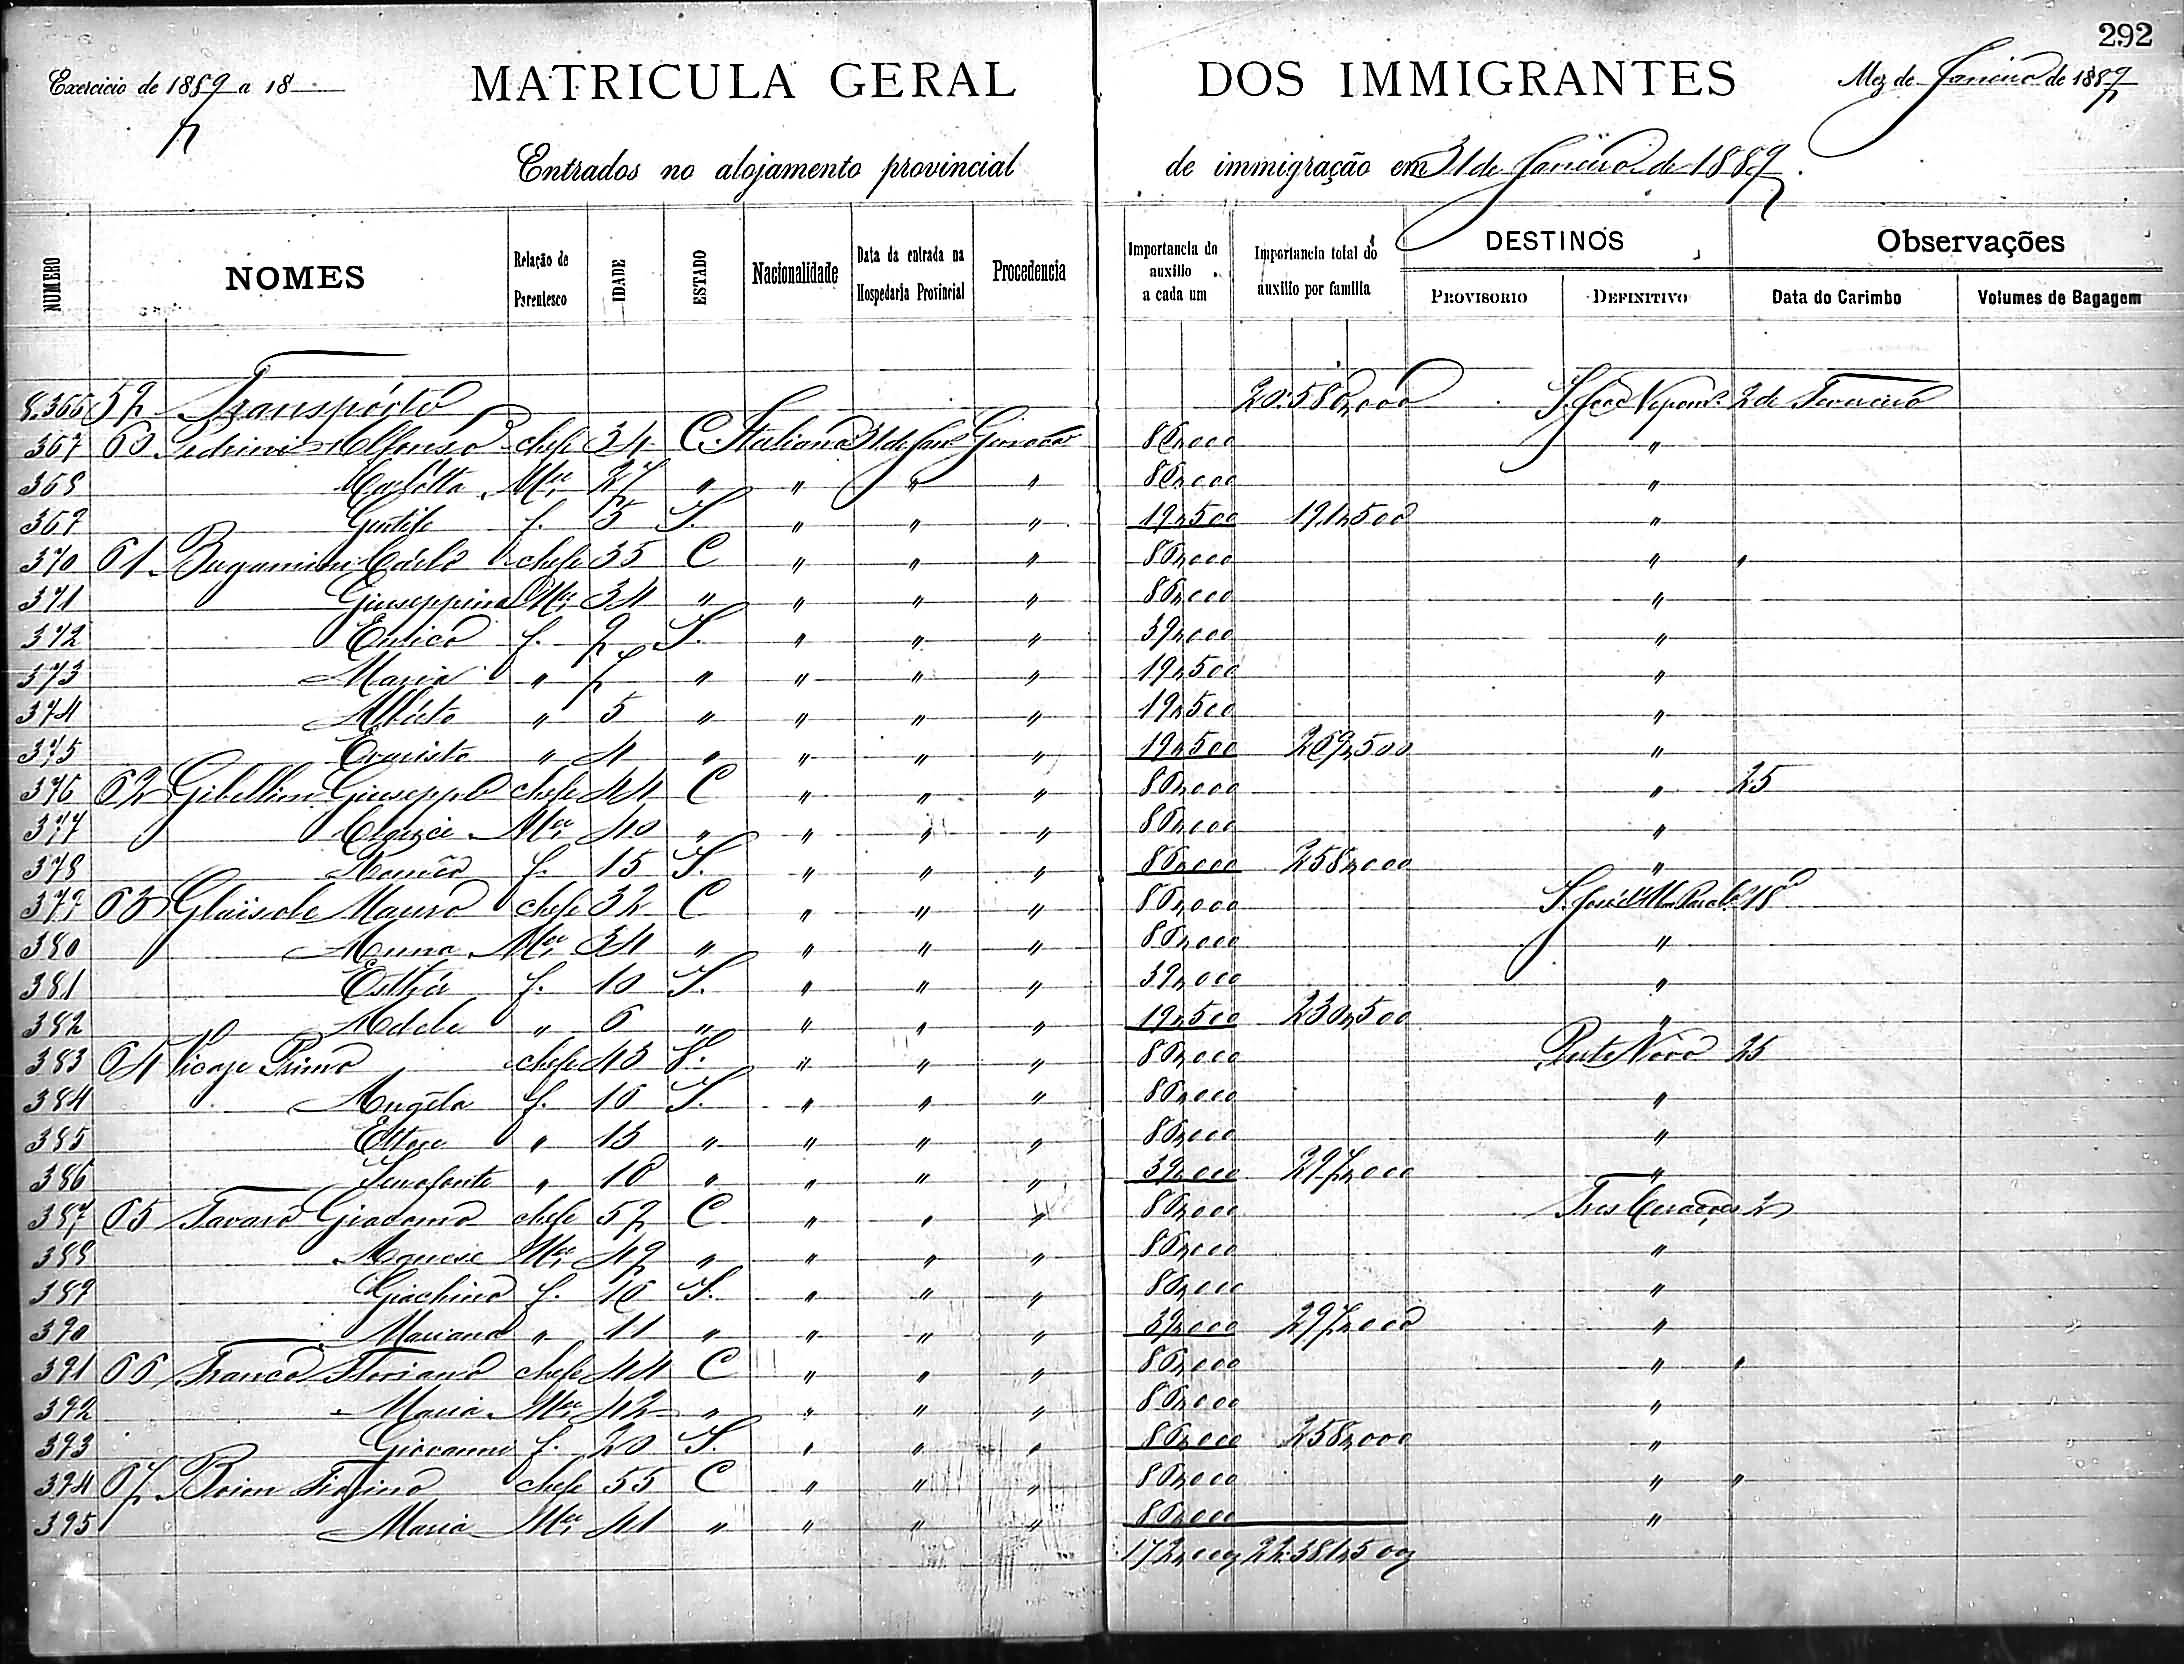 292
Exercicio de 1889 a 18
MATRICULA GERAL DOS IMMIGRANTES
Mez de Janeiro de 1889
Entrados no alojamento provincial de immigração em 31 de Janeiro de 1889
NUMERO NOMES Relação de Parentesco IDADE ESTADO Nacionalidade Data da entrada na Hospedaria Provincial Procedencia Importancia do auxilio a cada um Importancia total do auxilio por familia DESTINOS Observações
PROVISORIO DEFINITIVO Data do Carimbo Volumes de Bagagem
8.366 59 Transpórto 20:580,000 S. João Nepom.º 2 de Fevereiro
367 60 Pedrini Alfonso chefe 34 C Italiana 31 de Janº Genova 86,000 "
368 Carlotta Mer 27 " " " " 86,000 "
369 f. 5 S. " " " 19,500 191,500 "
370 61 Bergamini Carlo chefe 35 C " " " 86,000 " "
371 Giuseppina Mer 34 " " " " 86,000 "
372 Enrico f. 9 S. " " " 39,000 "
373 Maria " 7 " " " " 19,500 "
374 Alberto " 5 " " " " 19,500 "
375 Evaristo " 4 " " " " 19,500 269,500 "
376 62 Gibellini Giuseppe chefe 44 C " " " 86,000 " 25
377 Mer 40 " " " " 86,000 "
378 f. 15 S. " " " 86,000 258,000 "
379 63 Mauro chefe 32 C " " " 86,000 18
380 Anna Mer 34 " " " " 86,000 "
381 Esthér f. 10 S. " " " 39,000 "
382 Adele " 6 " " " " 19,500 230,500 "
383 64 Primo chefe 43 V. " " " 86,000 Ponte Nova 25
384 Angéla f. 16 S. " " " 86,000 "
385 Ettore " 13 " " " " 86,000 "
386 Senofonte " 10 " " " " 39,000 297,000 "
387 65 Favaro Giacomo chefe 59 C " " " 86,000 Tres Corações 2
388 Mer 49 " " " " 86,000 "
389 Giachino f. 16 S. " " " 86,000 "
390 Mariana " 11 " " " " 39,000 297,000 "
391 66 Franco Floriano chefe 44 C " " " 86,000 " "
392 Maria Mer 42 " " " " 86,000 "
393 Giovanni f. 20 S. " " " 86,000 258,000 "
394 67 chefe 55 C " " " 86,000 " "
395 Maria Mer 41 " " " " 86,000 "
172,000 22:381,500